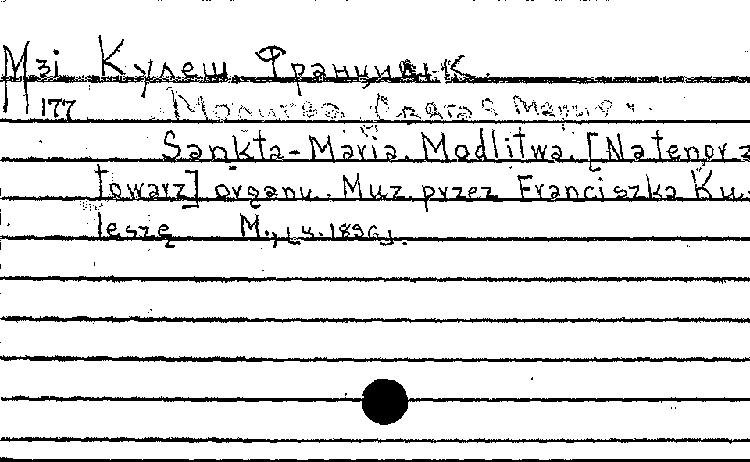 Мзі Кулеш, Францишк.
177 Молитва Святая Мария.
Sankta-Maria. Modlitwa. [Na tenor z
towarz] organu. Muz. przez Franciszka Ku-
leszę M., 1896.